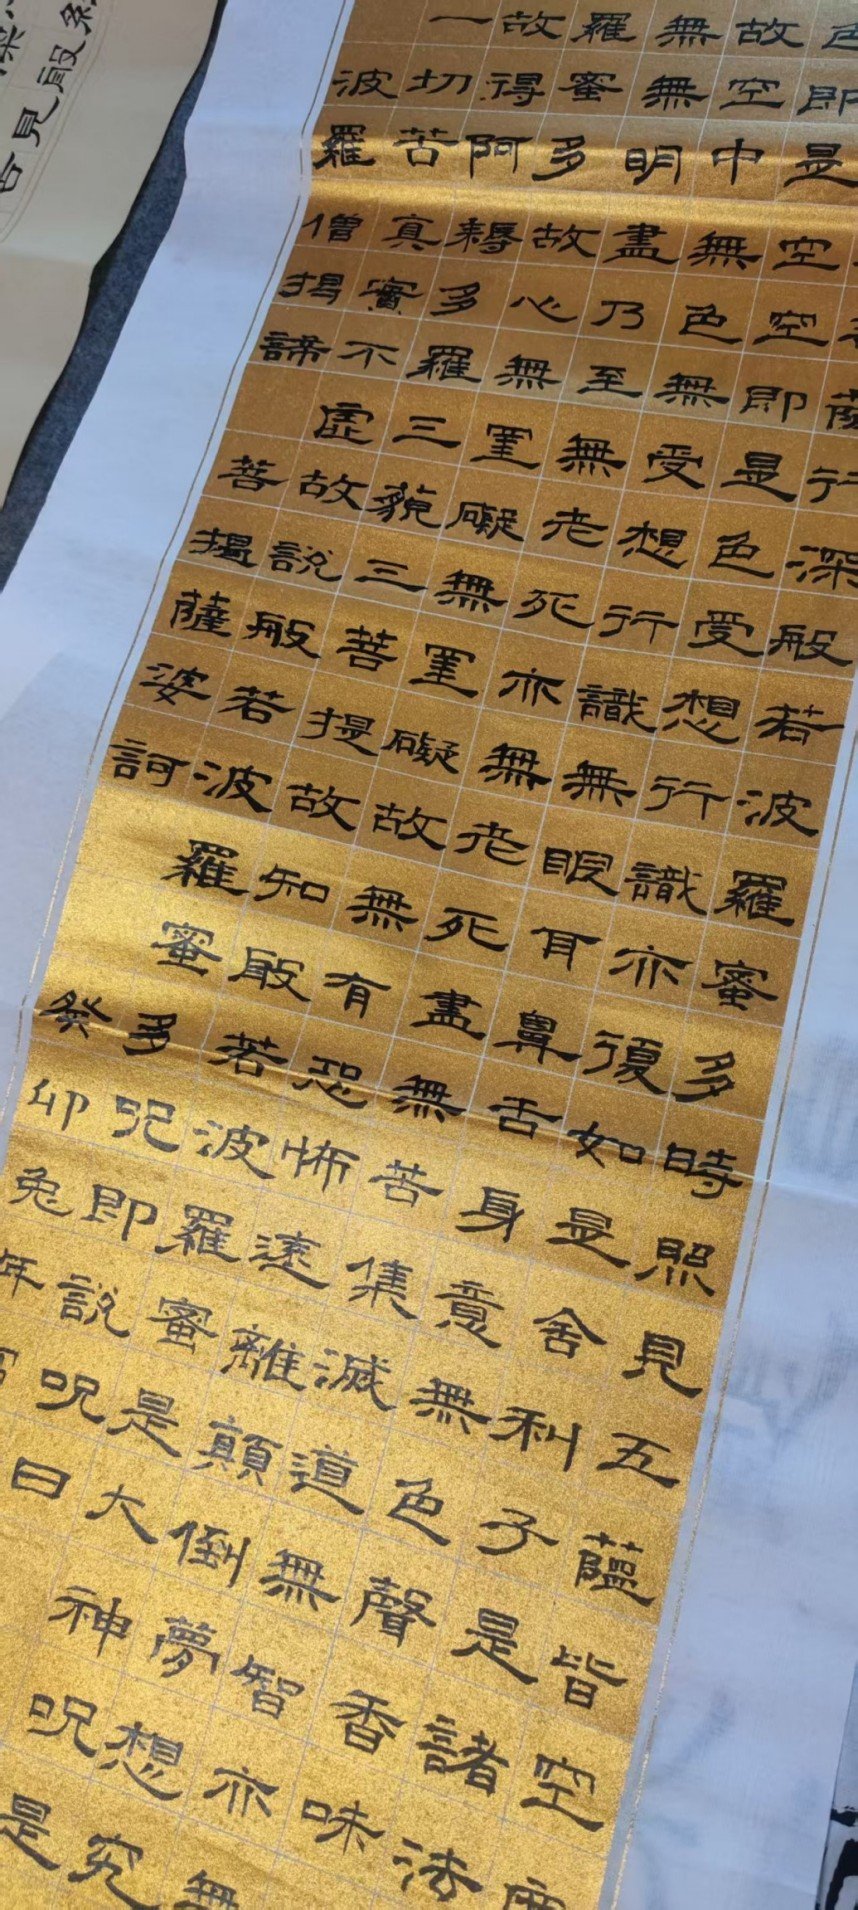 行深般若波羅蜜多時照見五蘊皆空度
色即是空空即是色受想行識亦復如是舍利子是諸法
故空中無色無受想行識無眼耳鼻舌身意無色聲香味
無無明盡乃至無老死亦無老死盡無苦集滅道無智亦無
羅蜜多故心無罣礙無罣礙故無有恐怖遠離顛倒夢想究
故得阿耨多羅三藐三菩提故知般若波羅蜜是大神呪是
一切苦真實不虛故說般若波羅蜜多呪即說呪曰
波羅僧揭諦菩提薩婆訶
癸卯兔年